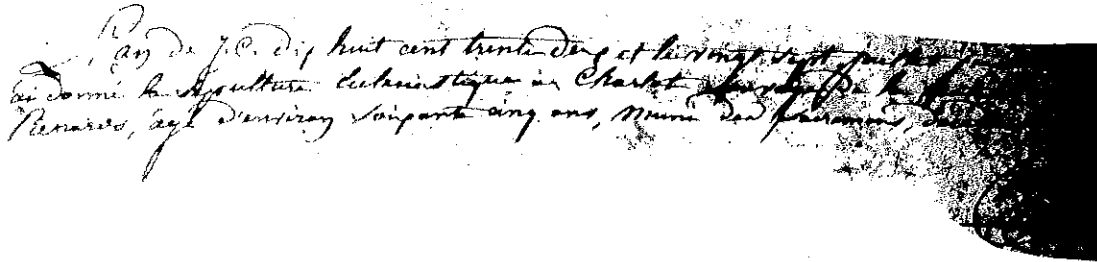 L'an de J.C. dix huit cent trente deux et le vingt sept juillet
ai donné la sépulture Ecclésiastique à Charlot de la
agé d'environ soixante cinq ans, muni des sacremens,